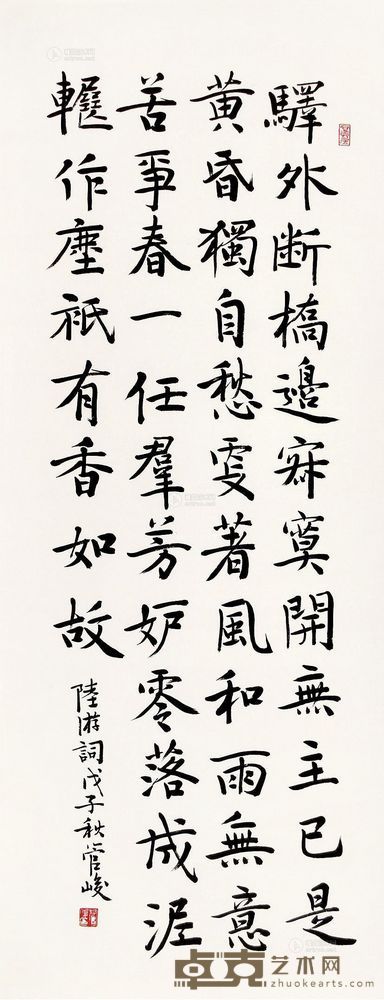 驛外断橋邉寂寞開無主已是
黄昏獨自愁更著風和雨無意
苦爭春一任羣芳妒零落成泥
輾作塵祇有香如故
陸游詞戊子秋管峻
卓克艺术网
zhuokearts.com